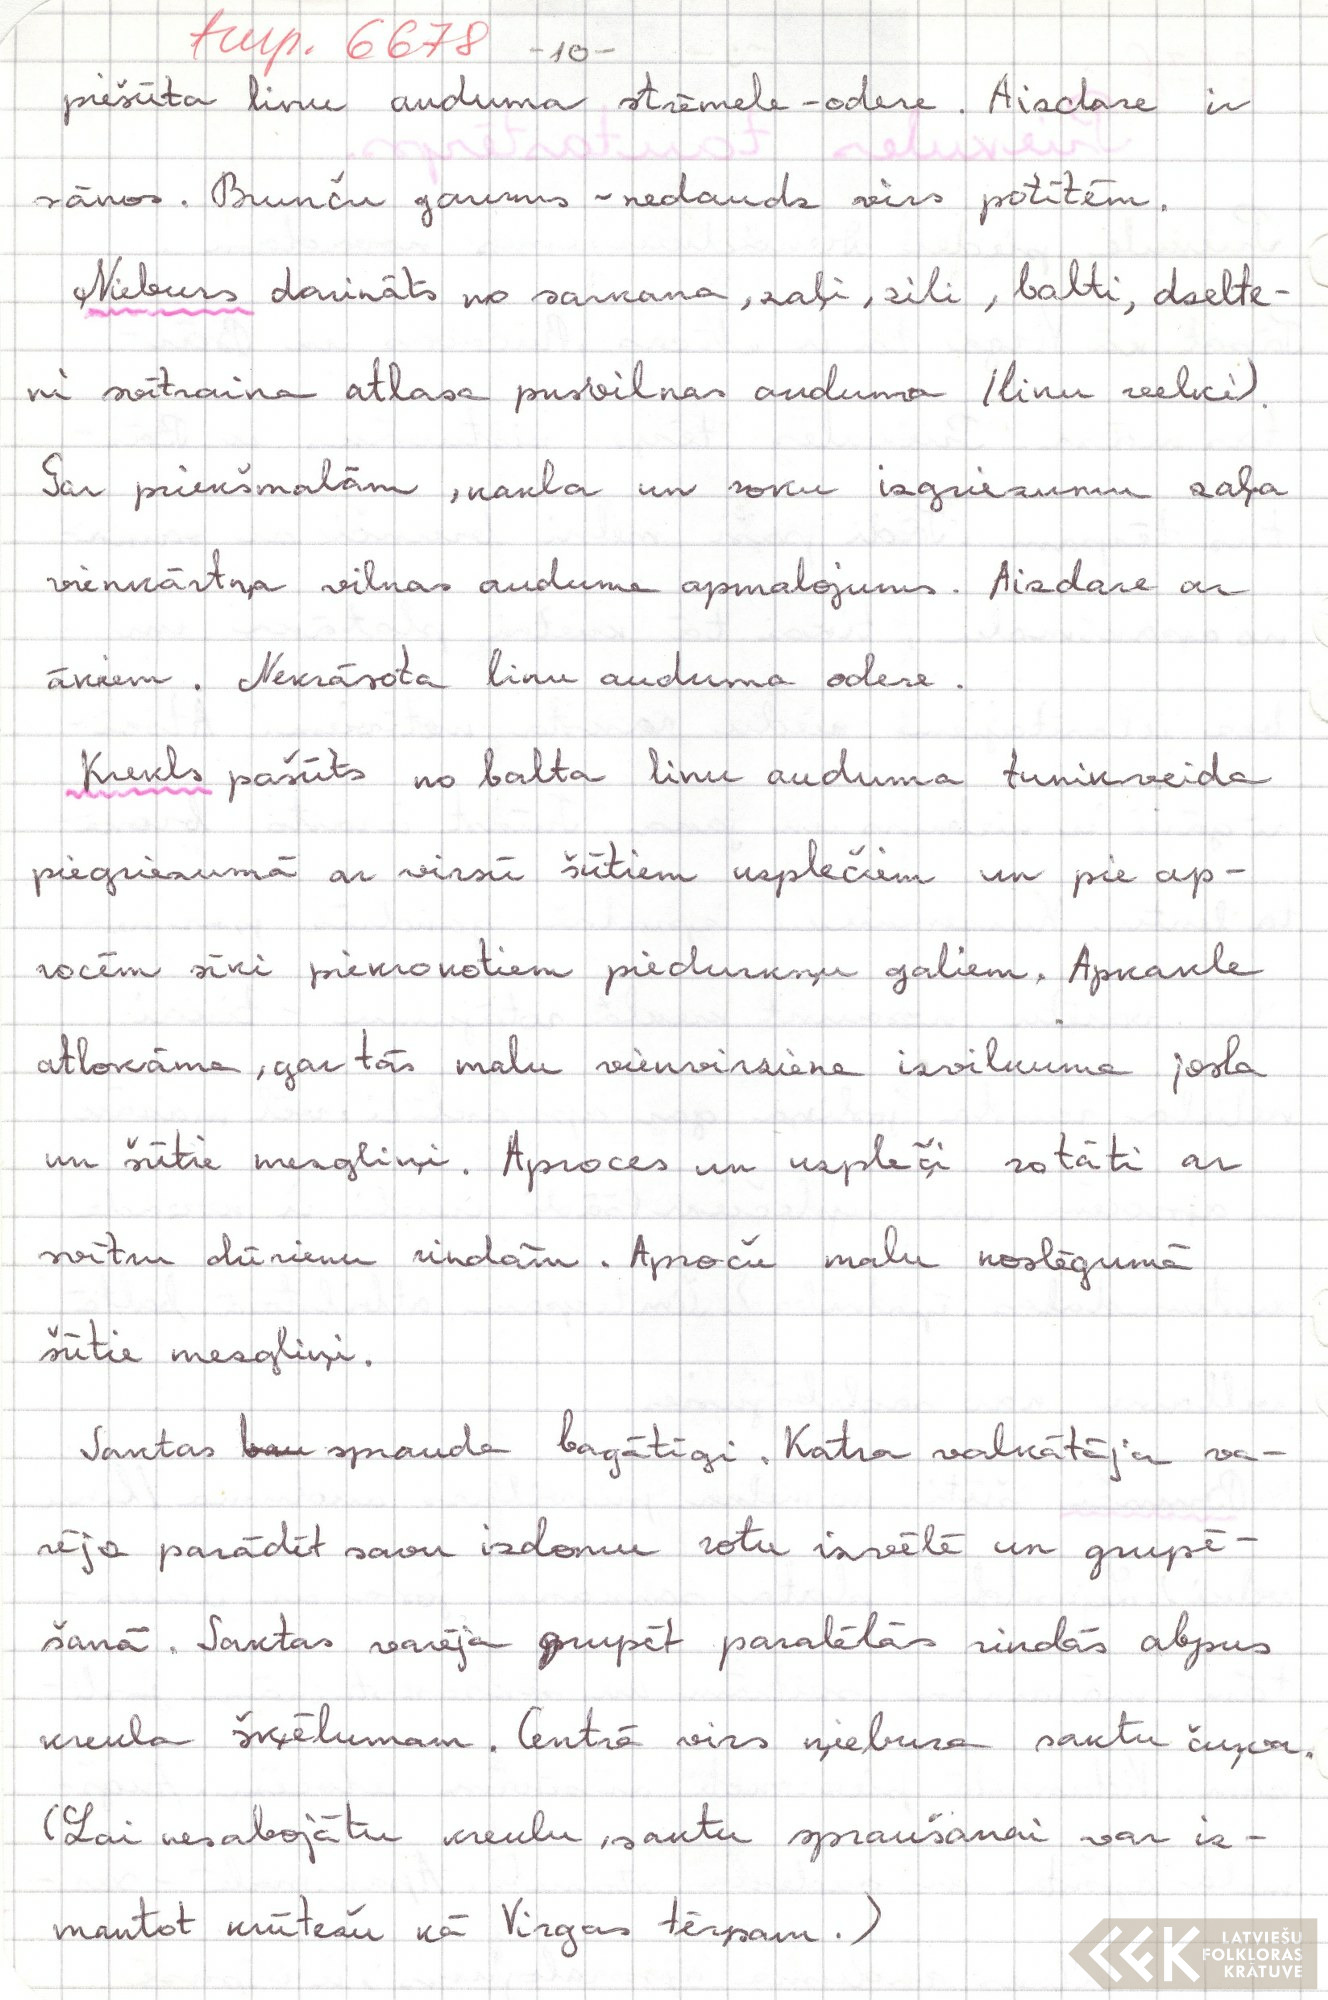 turp. 6678 -10-
piešūta linu auduma strēmele-odere. Aizdare ir
sānos. Brunču garums - nedaudz virs potītēm.
Ņieburs darināts no sarkana, zaļi, zili, balti, dzelte-
ni svītraina atlasa pusvilnas auduma (linu velki).
Gar priekšmalām, kakla un roku izgriezumu zaļa
vienkārtņa vilnas auduma apmalojums. Aizdare ar
āķiem. Nekrāsota linu auduma odere.
Krekls pašūts no balta linu auduma tunikveida
piegriezumā ar virsū šūtiem uzplečiem un pie ap-
rocēm sīki piekrokotiem piedurkņu galiem. Apkakle
atlokāma, gar tās malu vienvirziena izvilkuma josla
un šūtie mezgliņi. Aproces un uzpleči rotāti ar
svītru dūrienu rindām. Aproču malu noslēgumā
šūtie mezgliņi.
Saktas sprauda bagātīgi. Katra valkātāja va-
rēja parādīt savu izdomu rotu izvēlē un grupē-
šanā. Saktas varēja grupēt paralēlās rindās abpus
krekla šķēlumam. Centrā virs ņiebura saktu čupa.
(Lai nesabojātu kreklu, saktu spraušanai var iz-
mantot krūtežu kā Virgas tērpam.)
LATVIEŠU
FOLKLORAS
KRĀTUVE